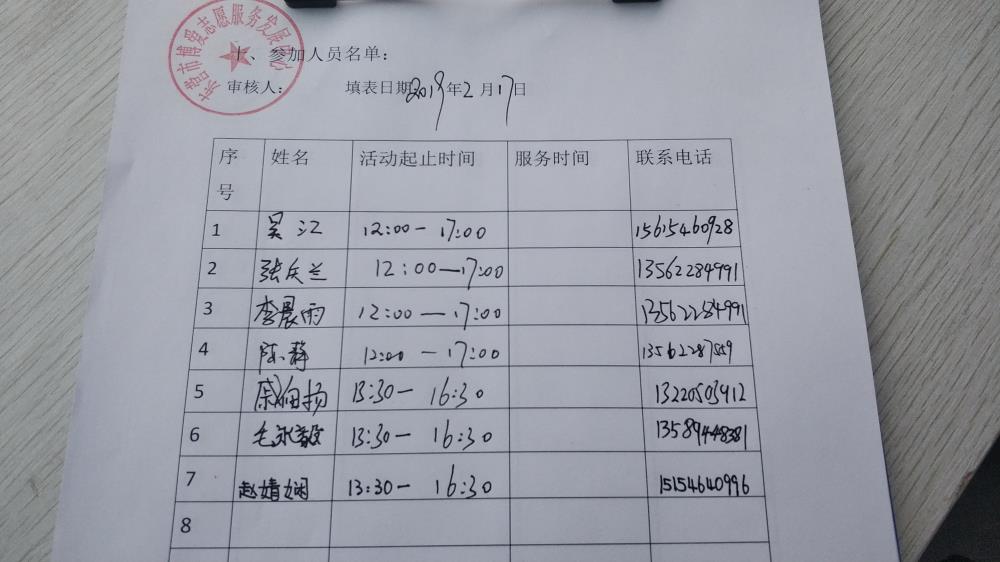 东营市博爱志愿服务发展中心
七、参加人员名单：
审核人： 填表日期2019年2月17日
序号 姓名 活动起止时间 服务时间 联系电话
1 吴江 12:00— 17:00 15615460928
2 张庆兰 12:00—17:00 13562284991
3 李晨雨 12:00—17:00 13562284991
4 陈静 12:00—17:00 13562287559
5 13:30— 16:30 13220503912
6 毛永毅 13:30— 16:30 13589448381
7 赵婧娴 13:30— 16:30 15154640996
8